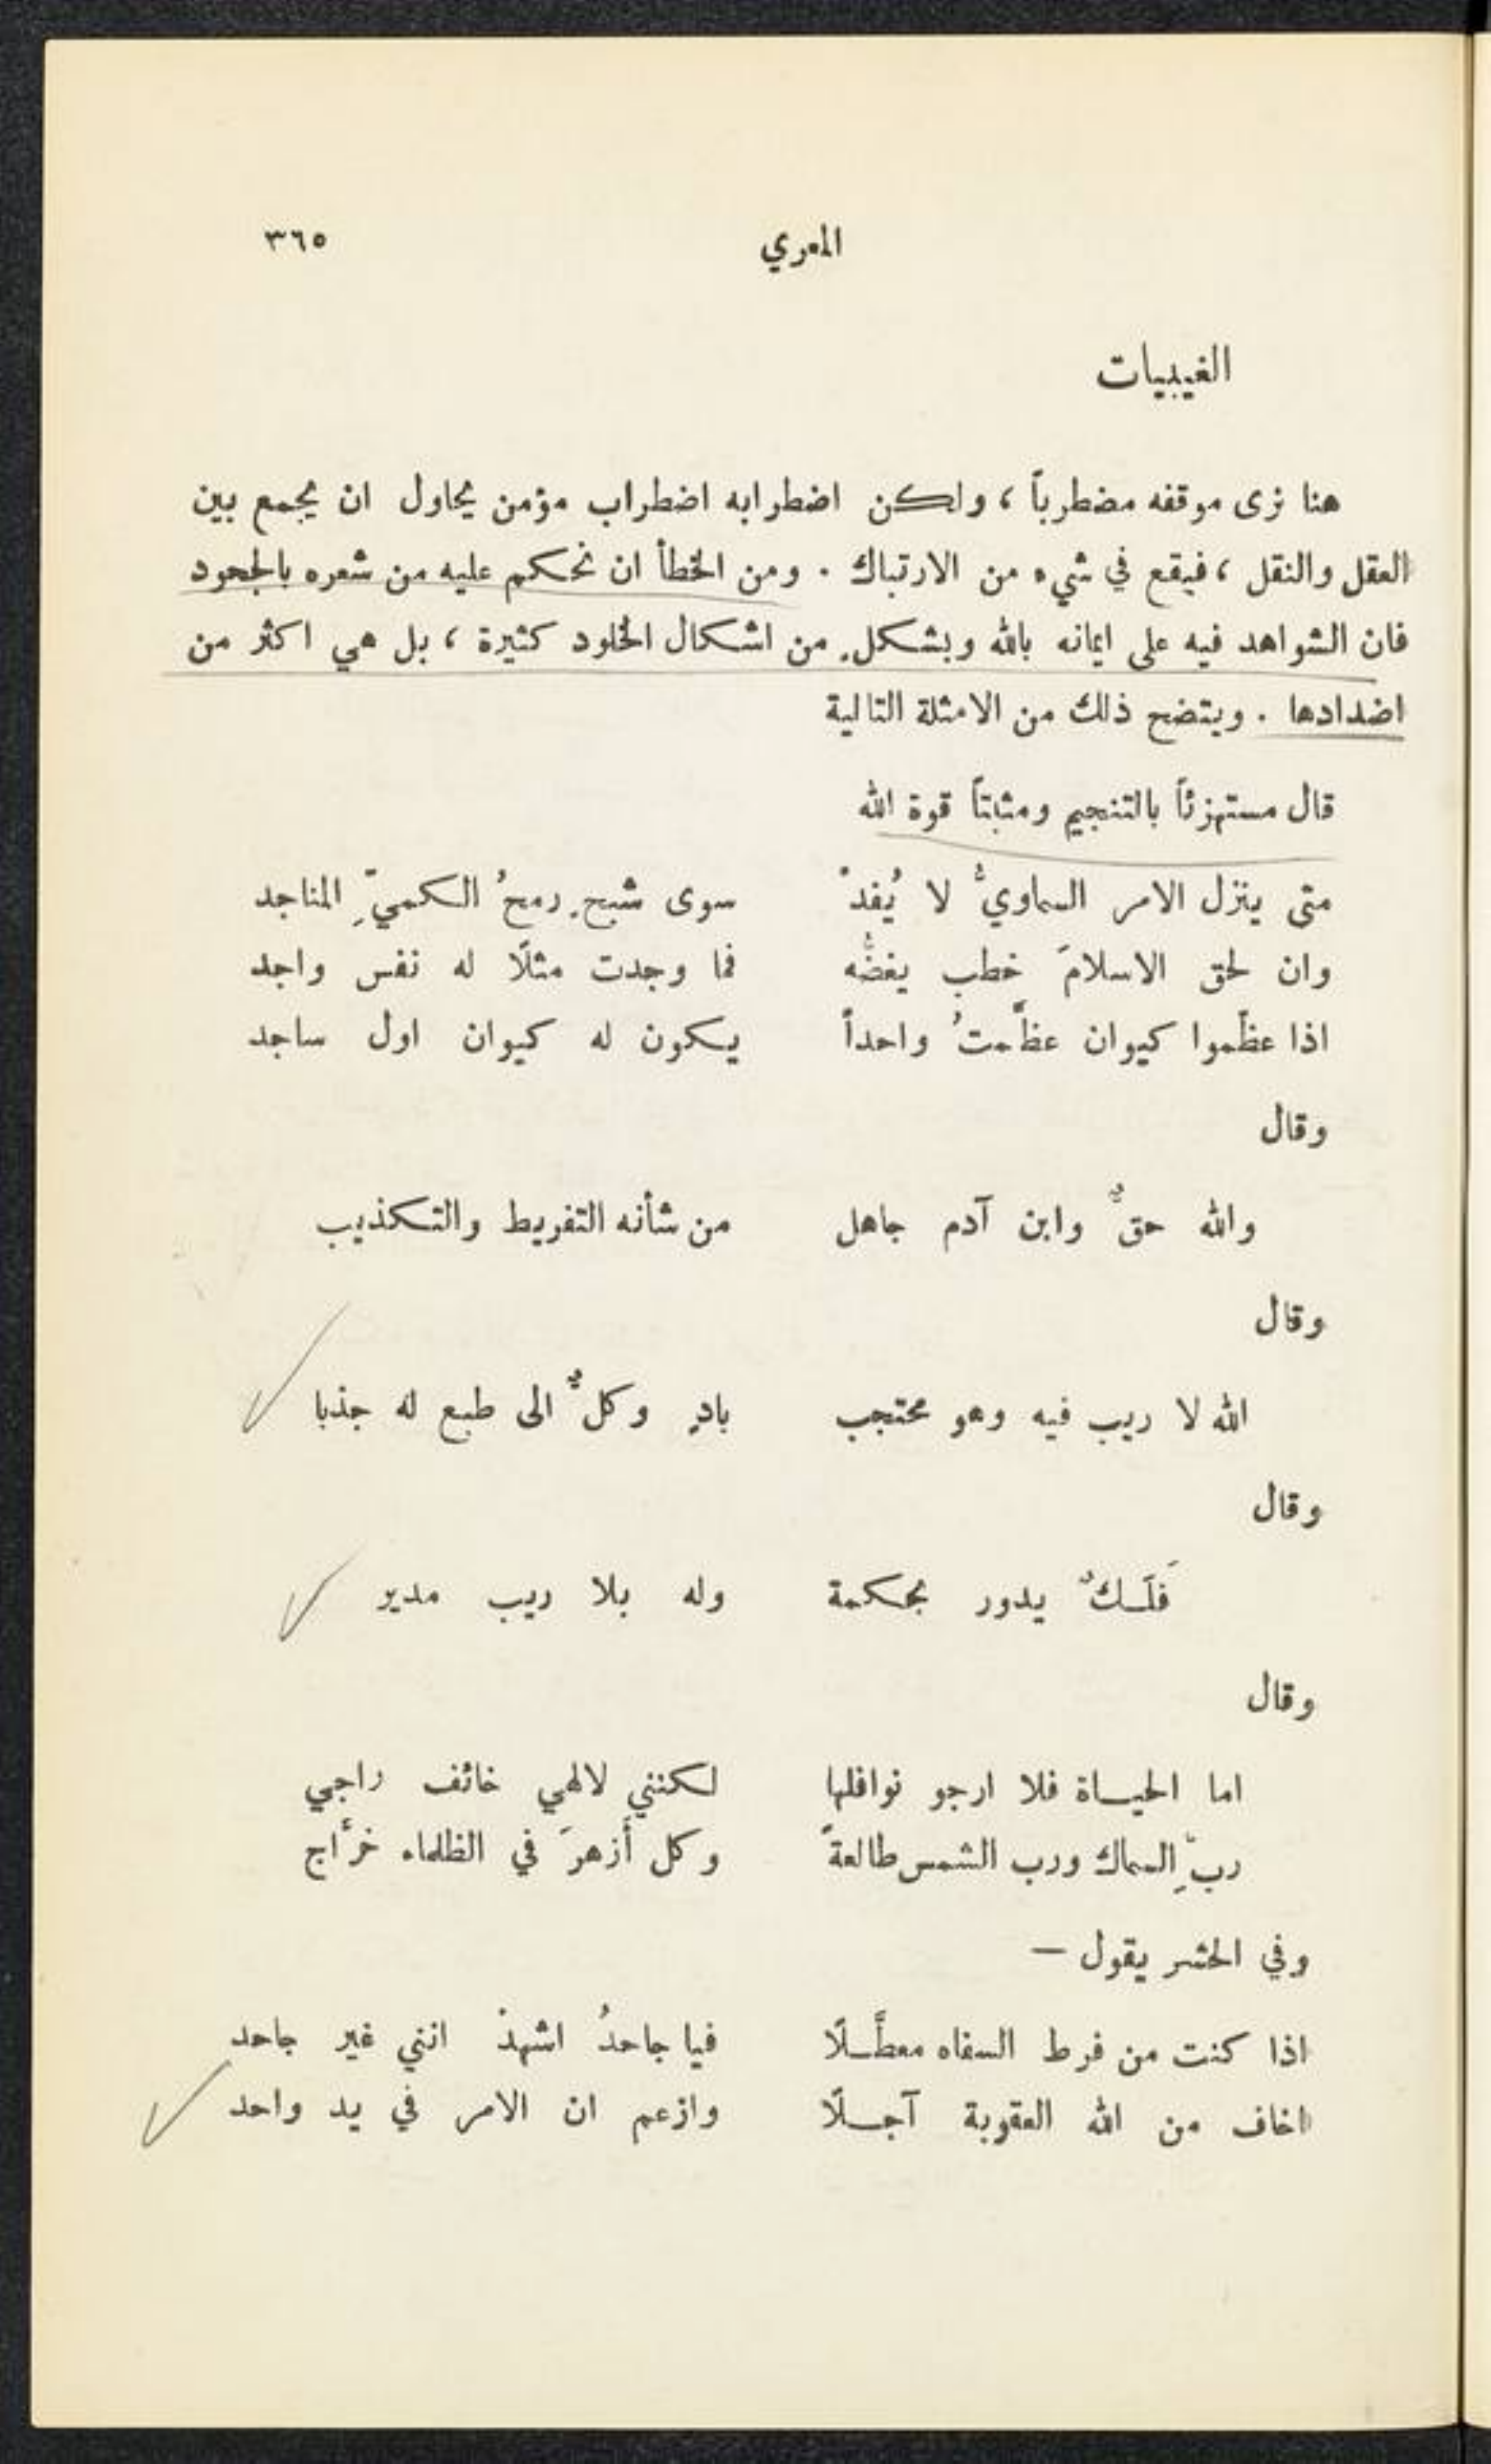 المعري ٣٦٥
الغيبيات
هنا نرى موقفه مضطرباً ، ولكن اضطرابه اضطراب مؤمن يحاول ان يجمع بين
العقل والنقل ، فيقع في شيء من الارتباك . ومن الخطأ ان نحكم عليه من شعره بالجحود
فان الشواهد فيه على ايمانه بالله وبشكلٍ من اشكال الخلود كثيرة ، بل هي اكثر من
اضدادها . ويتضح ذلك من الامثلة التالية
قال مستهزئاً بالتنجيم ومثبتاً قوة الله
متى ينزل الامر السماويُّ لا يُفدْ سوى شبحٍ رمحُ الكميّ المناجد
وان لحق الاسلامَ خطب يغضُّه فما وجدت مثلًا له نفس واجد
اذا عظّموا كيوان عظّمتُ واحداً يكون له كيوان اول ساجد
وقال
والله حقٌّ وابن آدم جاهل من شأنه التفريط والتكذيب
وقال
الله لا ريب فيه وهو محتجب بادٍ وكلٌّ الى طبع له جذبا
وقال
فَلَكٌ يدور بحكمة وله بلا ريب مدير
وقال
اما الحياة فلا ارجو نوافلها لكنني لالهي خائف راجي
ربِّ السماك ورب الشمس طالعةً وكل أزهرَ في الظلماء خرّاج
وفي الحشر يقول —
اذا كنت من فرط السفاه معطَّلًا فيا جاحدُ اشهدْ انني غير جاحد
اخاف من الله العقوبة آجلًا وازعم ان الامر في يد واحد